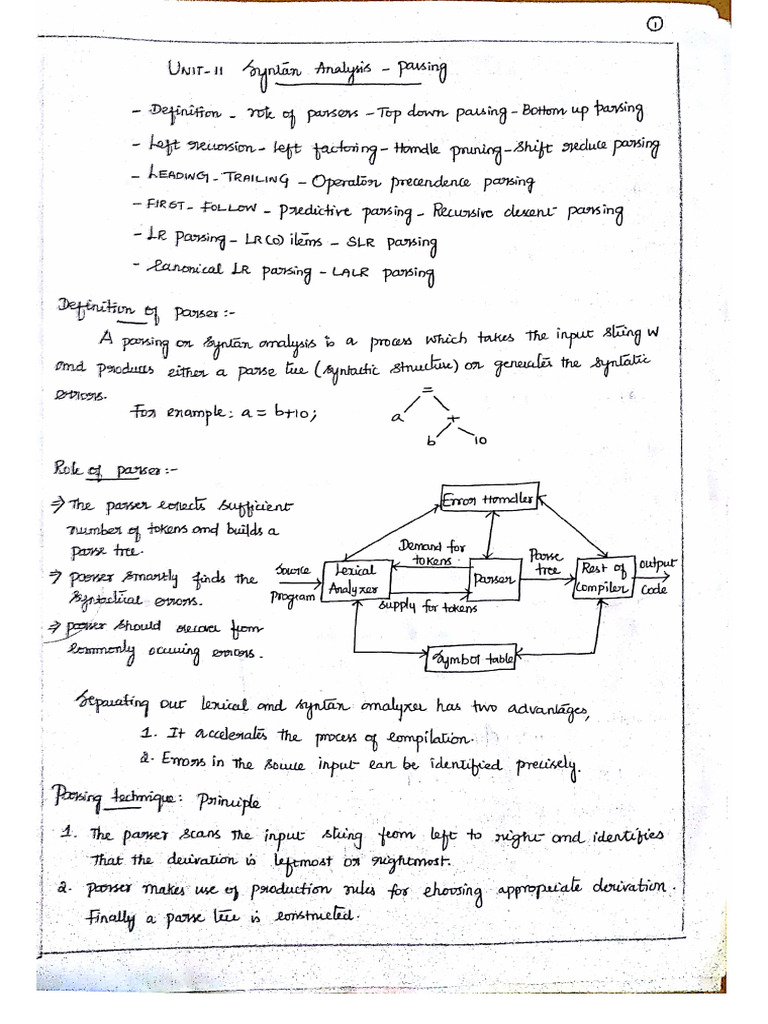 1
UNIT-II Syntax Analysis - parsing
- Definition - role of parsers - Top down parsing - Bottom up parsing
- Left recursion - left factoring - Handle pruning - Shift reduce parsing
- LEADING - TRAILING - Operator precendence parsing
- FIRST - FOLLOW - predictive parsing - Recursive descent parsing
- LR parsing - LR(0) items - SLR parsing
- Canonical LR parsing - LALR parsing
Definition of parser:-
A parsing or syntax analysis is a process which takes the input string w
and produces either a parse tree (syntactic structure) or generates the syntatic
errors.
For example: a = b+10;
=
a
+
b
10
Role of parser:-
⇒ The parser collects sufficient
number of tokens and builds a
parse tree.
⇒ parser smartly finds the
syntactical errors.
⇒ parser should recover from
commonly occuring errors.
Error Handler
Source
program
Lexical
Analyzer
Demand for
tokens
supply for tokens
Parser
Parse
tree
Rest of
Compiler
output
code
Symbol table
Separating out lexical and syntax analyzer has two advantages,
1. It accelerates the process of compilation.
2. Errors in the source input can be identified precisely.
Parsing technique: Principle
1. The parser scans the input string from left to right and identifies
that the derivation is leftmost or rightmost.
2. parser makes use of production rules for choosing appropriate derivation.
Finally a parse tree is constructed.